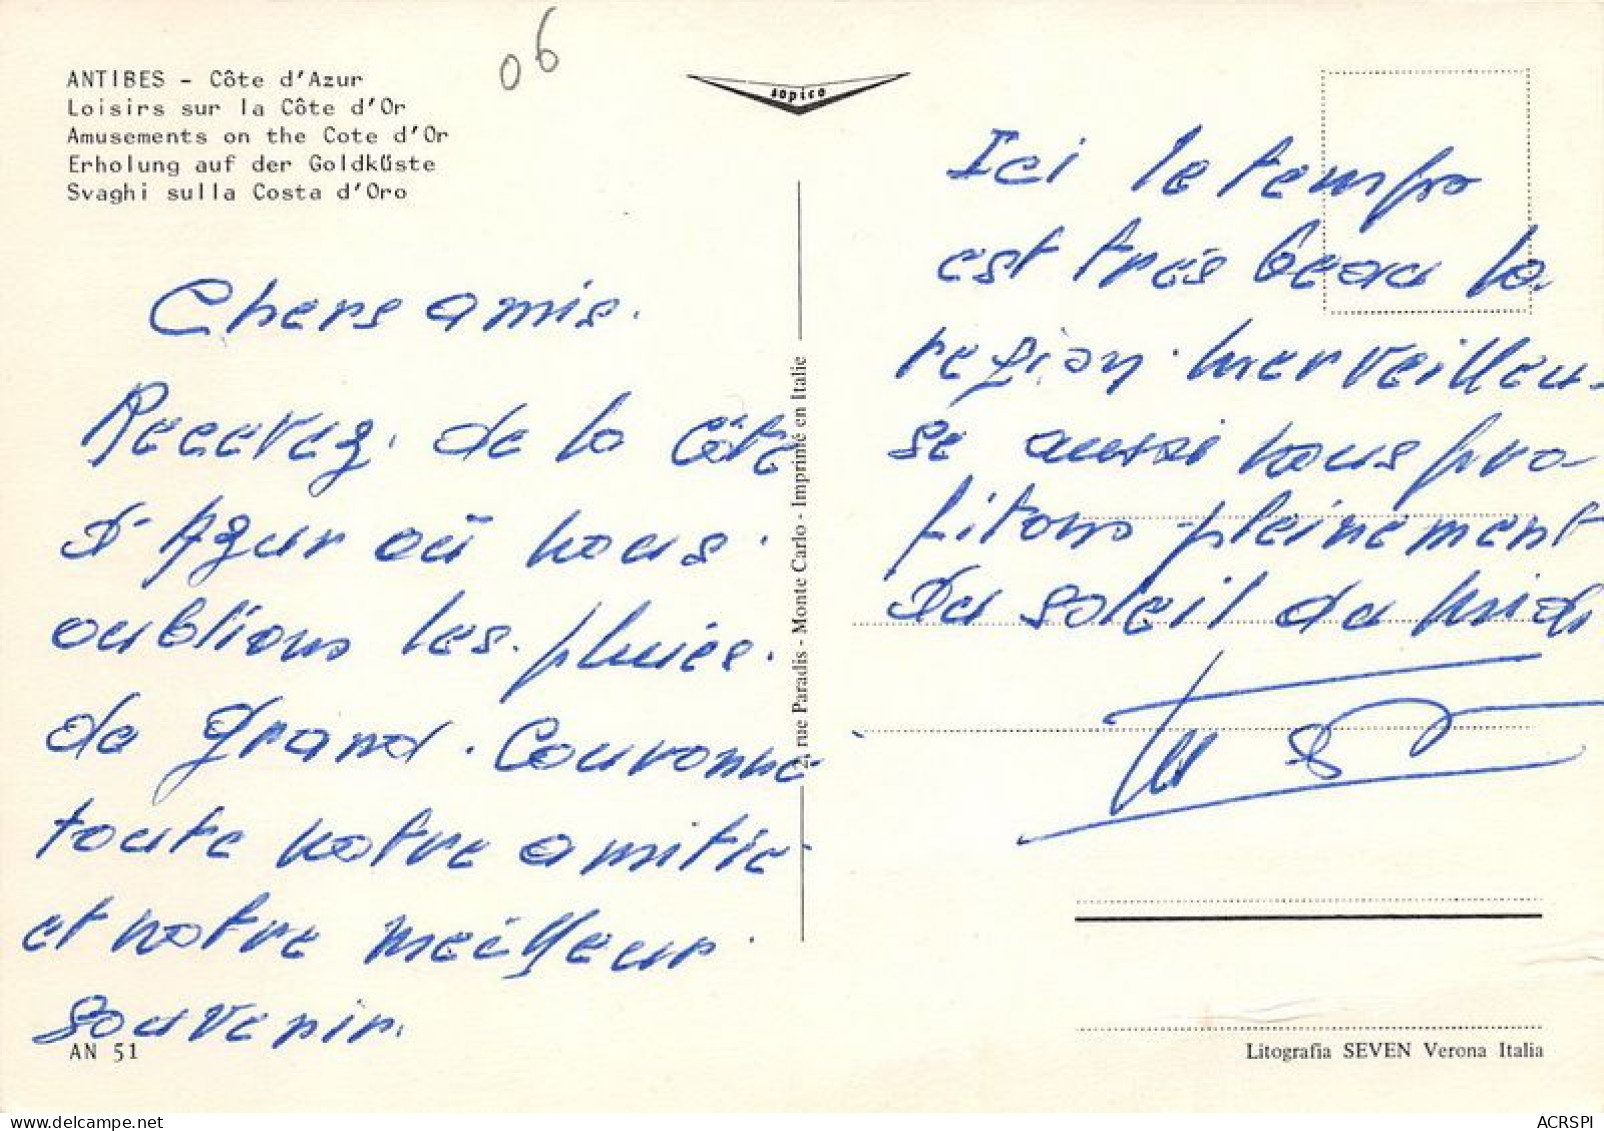 ANTIBES - Côte d'Azur
Loisirs sur la Côte d'Or
Amusements on the Cote d'Or
Erholung auf der Goldküste
Svaghi sulla Costa d'Oro
06
sopico
Chers amis.
Recevez. de la Côte
d'Azur où nous.
oublions les. pluies.
de grand. Couronne
toute notre amitié
et notre meilleur.
souvenir.
AN 51
2, rue Paradis - Monte Carlo - Imprimé en Italie
Ici le temps
est très beau la
region. merveilleu-
se aussi nous pro-
fitons pleinement
du soleil du midi
Litografia SEVEN Verona Italia
ACRSPI